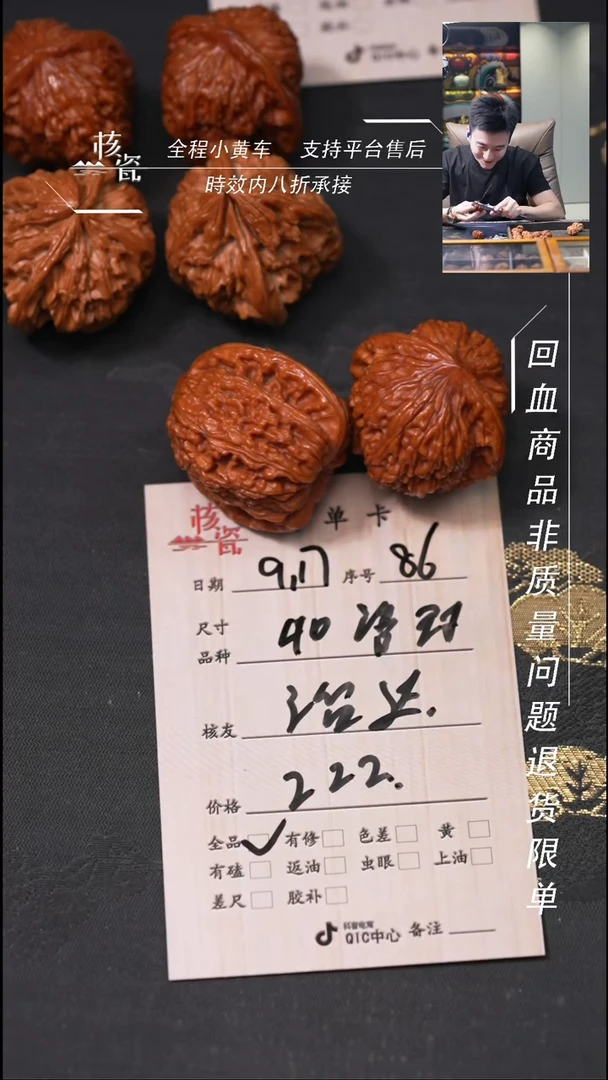 核瓷
全程小黄车 支持平台售后
時效内八折承接
回血商品非质量问题退货限单
核瓷 单卡
日期 序号
尺寸
品种
核友
价格 222.
全品 有修 色差 黄
有磕 返油 虫眼 上油
差尺 胶补
抖音电商
QIC中心 备注